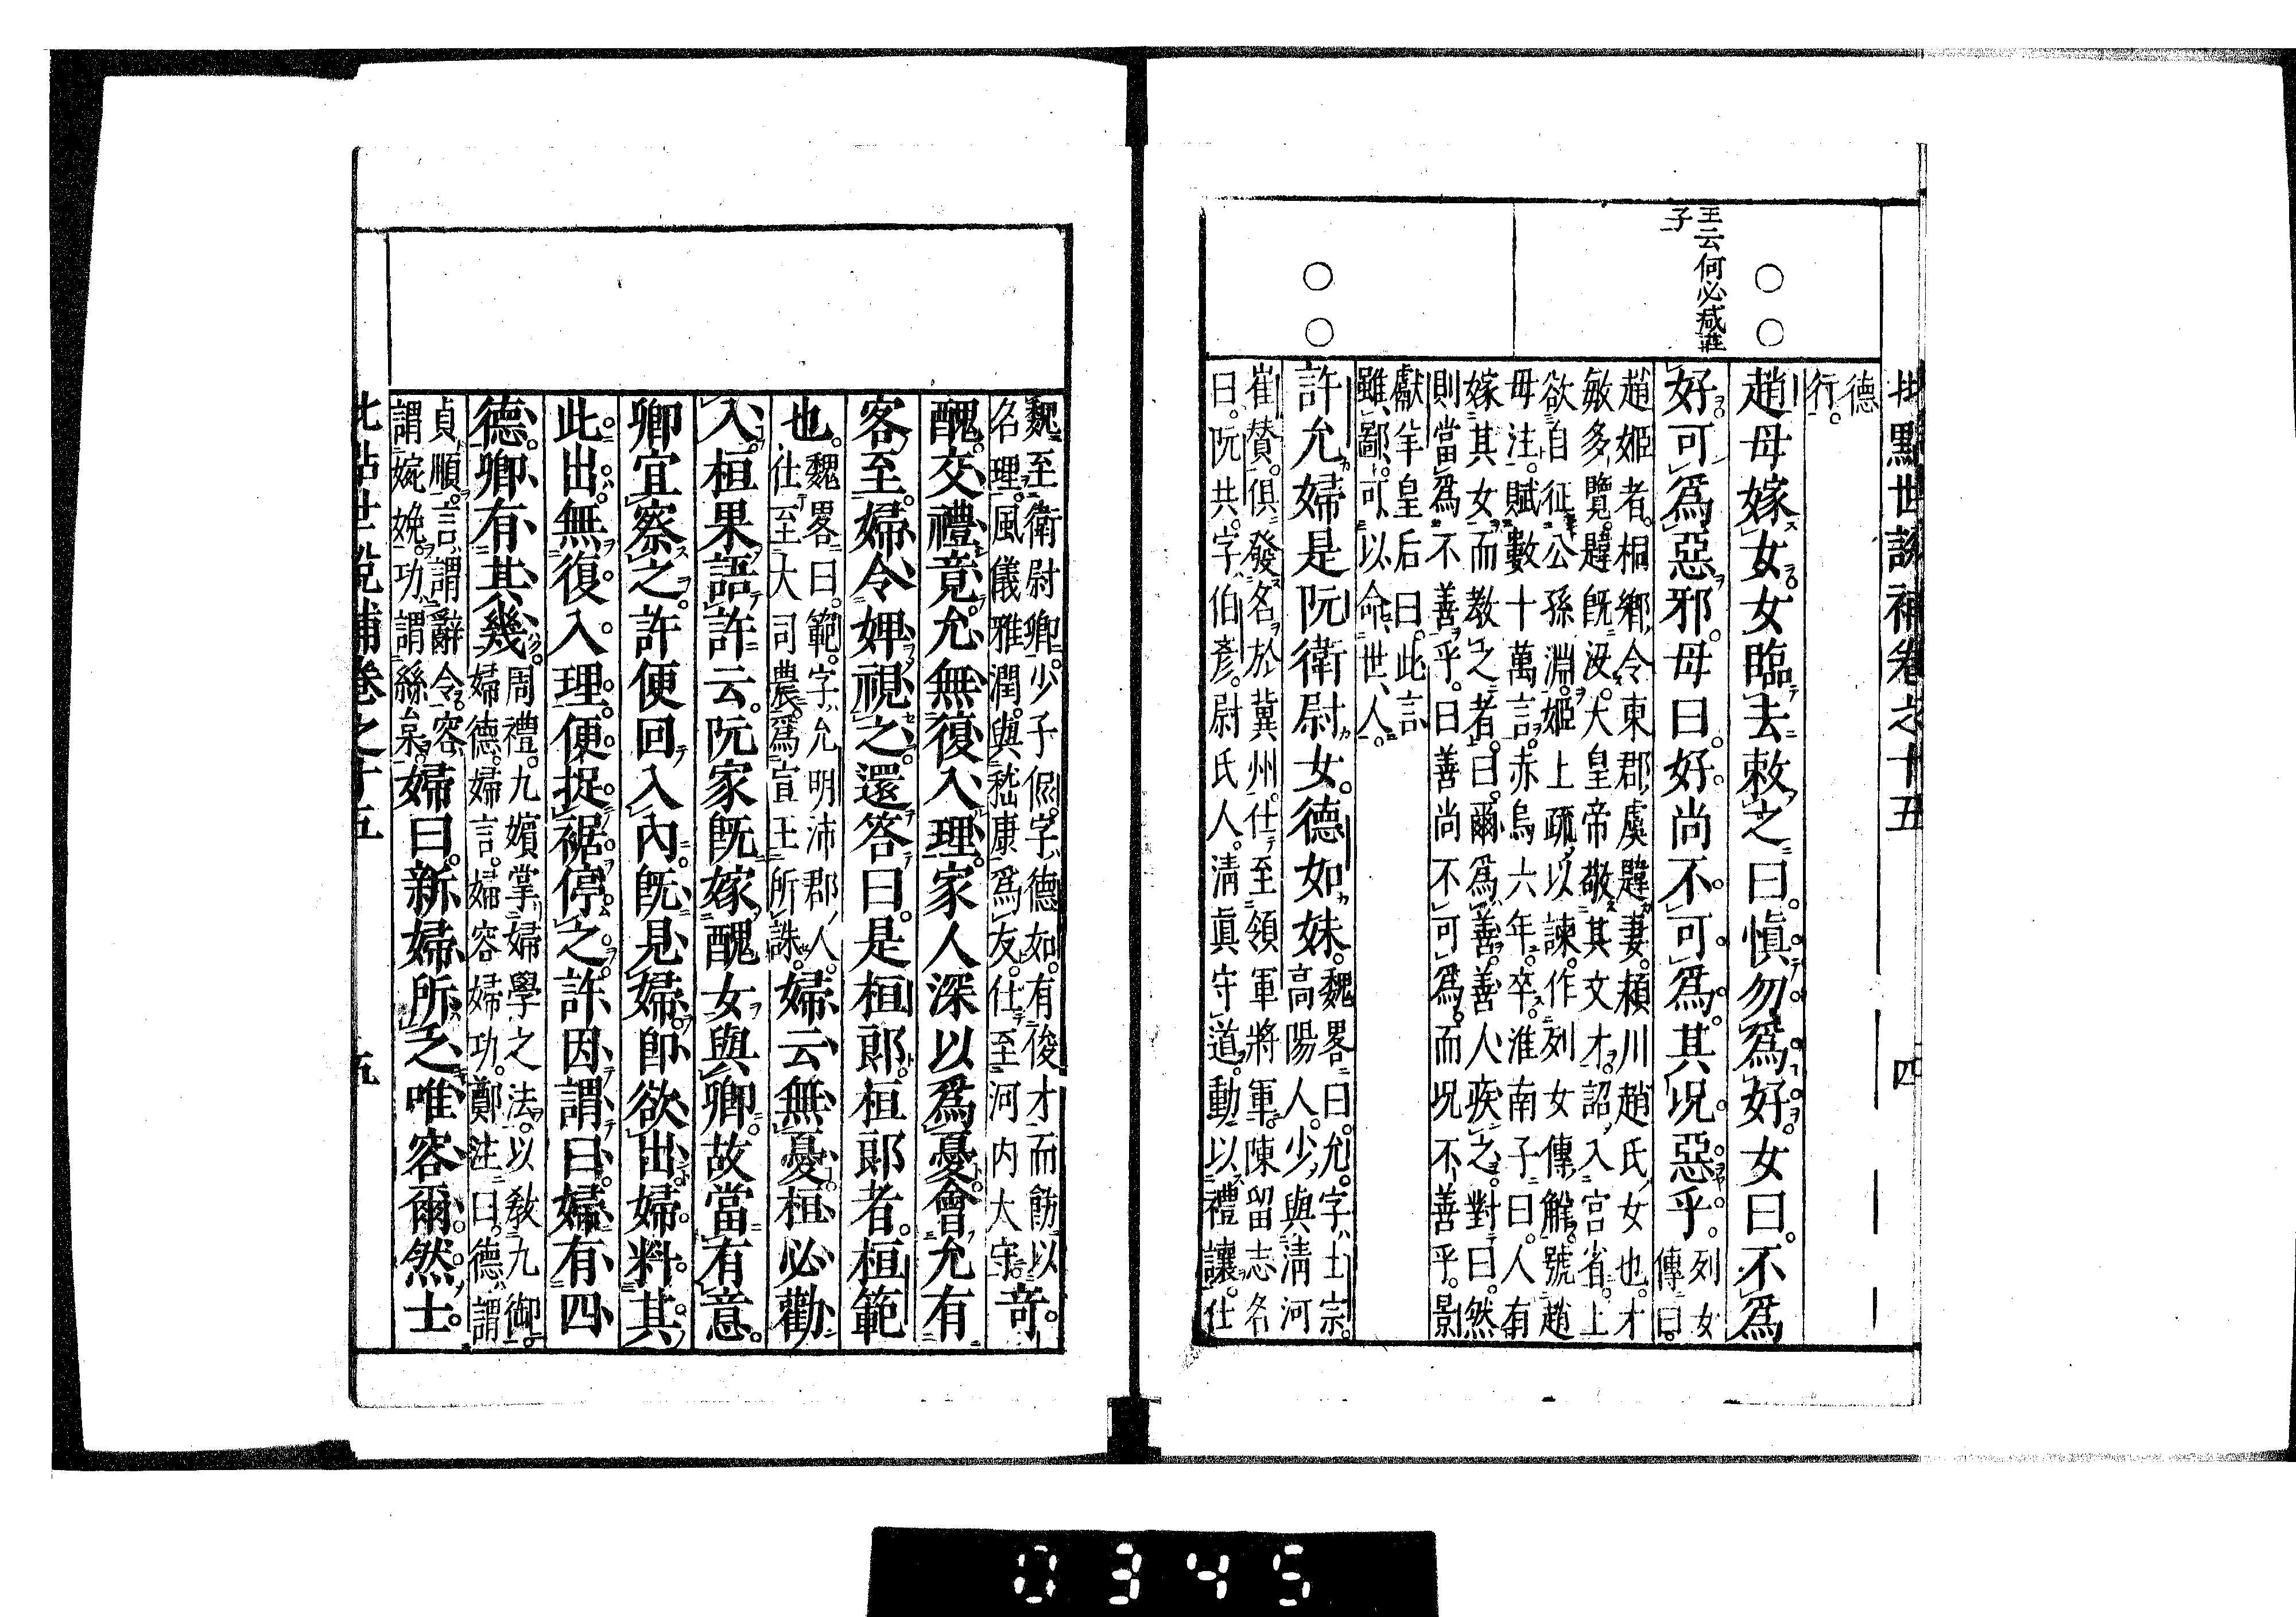 批點世說補卷之十五 四
德
行。
王云何必減莊
子
趙母嫁女。女臨去敕之曰。愼勿爲好。女曰。不爲
好可爲惡邪。母曰。好尚不可爲。其況惡乎。列女
傳曰。
趙姬者。桐鄉令東郡虞韙妻。潁川趙氏女也。才
敏多覽。韙旣沒。大皇帝敬其文才。詔入宮省。上
欲自征公孫淵。姬上疏以諫。作列女傳解。號趙
母注。賦數十萬言。赤烏六年卒。淮南子曰。人有
嫁其女而敎之者。曰。爾爲善。善人疾之。對曰。然
則當爲不善乎。曰善尚不可爲。而況不善乎。景
獻羊皇后曰。此言
雖鄙。可以命世人。
許允婦是阮衛尉女。德如妹。魏畧曰。允字士宗。
高陽人。少與淸河
崔贊。俱發名於冀州。仕至領軍將軍。陳留志名
曰。阮共。字伯彥。尉氏人。淸眞守道。動以禮讓。仕
魏至衛尉卿。少子侃。字德如。有俊才。而飭以
名理。風儀雅潤。與嵆康爲友。仕至河内大守。奇
醜。交禮竟。允無復入理。家人深以爲憂。會允有
客至。婦令婢視之。還答曰。是桓郞。桓郞者。桓範
也。魏畧曰。範字允明沛郡人。
仕至大司農。爲宣王所誅。婦云無憂。桓必勸
入。桓果語許云。阮家旣嫁醜女與卿。故當有意。
卿宜察之。許便回入內。旣見婦。卽欲出。婦料其
此出。無復入理。便捉裾停之。許因謂曰。婦有四
德。卿有其幾。周禮。九嬪掌婦學之法。以敎九御。
婦德。婦言。婦容。婦功。鄭注曰。德謂
貞順。言謂辭令。容
謂婉娩。功謂絲枲。婦曰。新婦所乏。唯容爾。然士
批點世說補卷之十五 五
0345